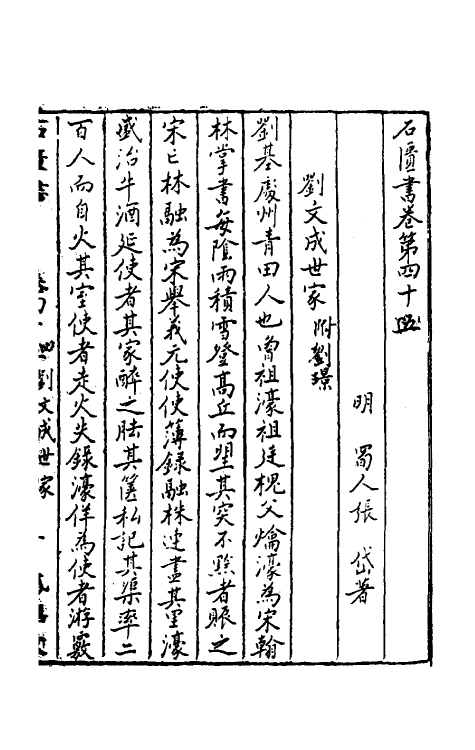 石匱書卷第四十四
明　蜀人張　岱著
劉文成世家附劉璟
劉基處州青田人也曾祖濠祖廷槐父爚濠為宋翰
林掌書每陰雨積雪登高丘而望其突不黔者賑之
宋亡林融為宋舉義元使使簿錄融株連盡其里濠
盛治牛酒延使者其家醉之胠其篋私記其渠率二
百人而自火其室使者走火失錄濠佯為使者游覈
石匱書　卷四十四　劉文成世家　一